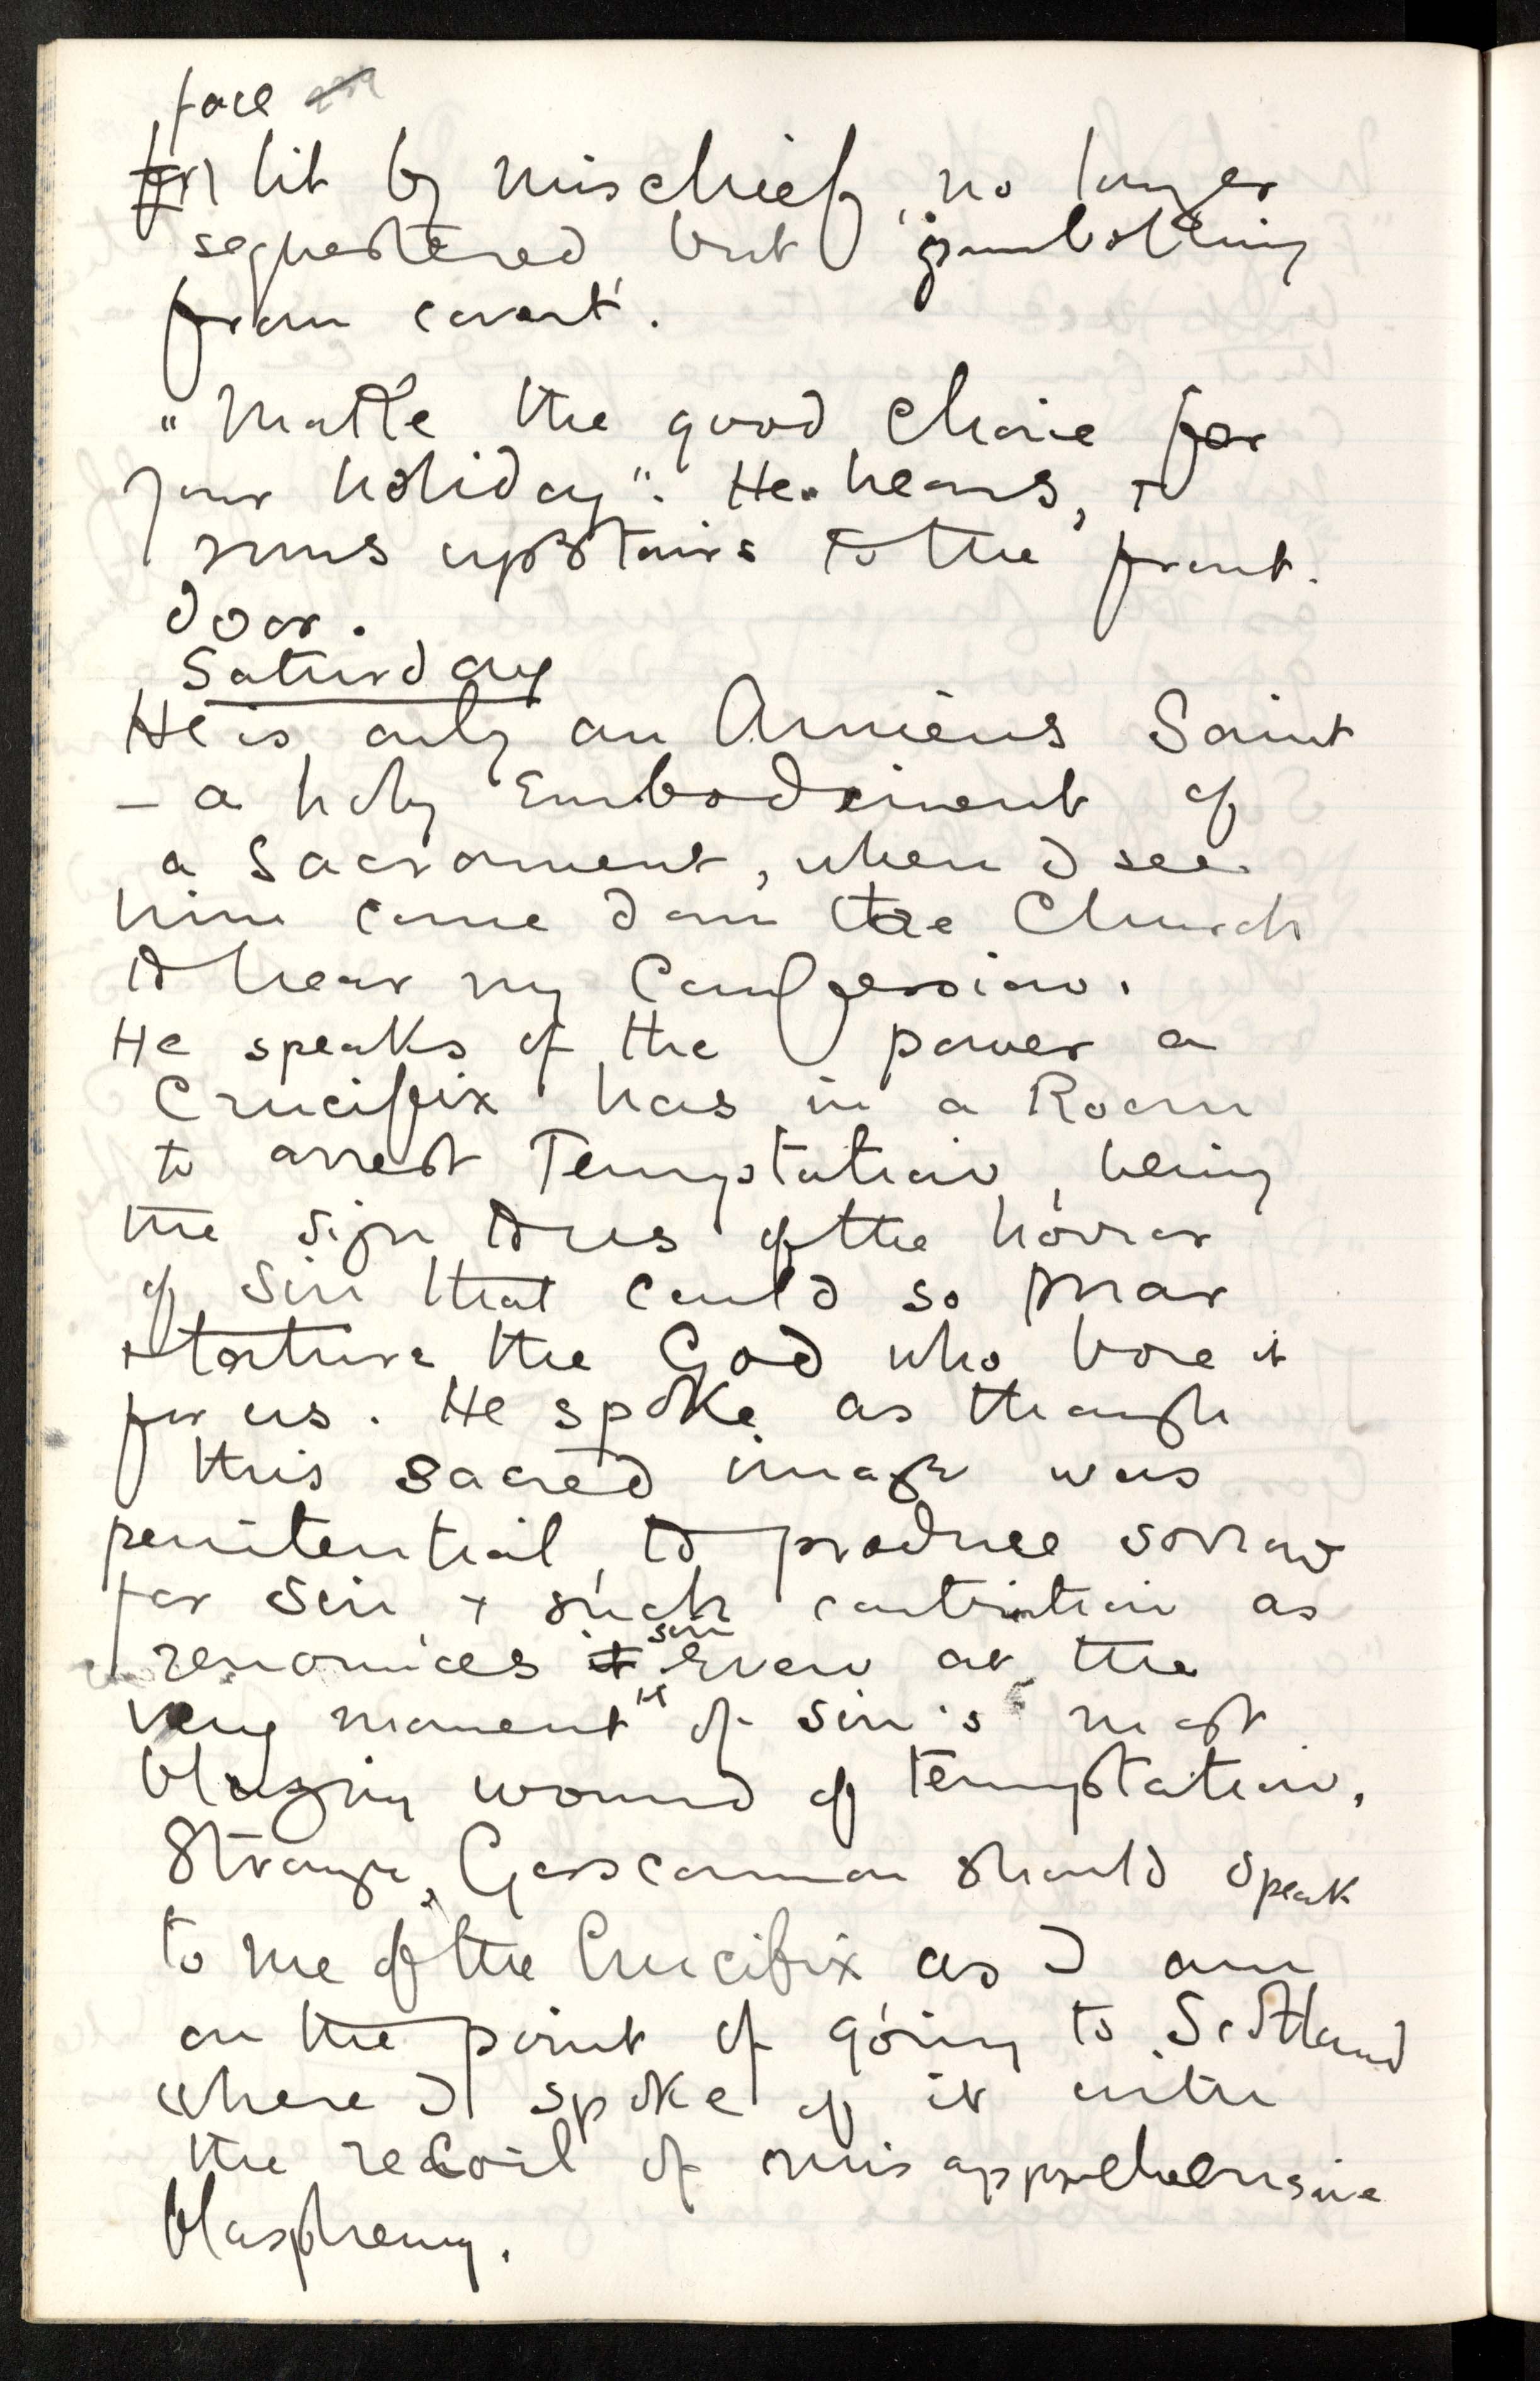 face
lit by mischief, no longer
sequestered, but gambolling
from covert.
"Matte the good choice for
your holiday". He hears, +
runs upstairs to the front.
door.
Saturday
He is only an Amiens Saint
– a holy Embodiment of
a Sacrament, when I see
him come down the Church
to hear my Confession.
He speaks of the power a
Crucifix has in a Room
to arrest Temptation, being
the sign to us of the horror
of Sin that could so mar
+ torture the God who bore it
for us. He spoke as though
this sacred image was
penitential, to produce sorrow
for Sin + such contrition as
renounces it sin Even at the
very moment of sin's most
blazing wound of Temptation.
Strange, Gosscannon should speak
to me of the Crucifix as I am
on the point of going to Scotland
where I spoke of it with
the recoil of misapprehensive
blasphemy.